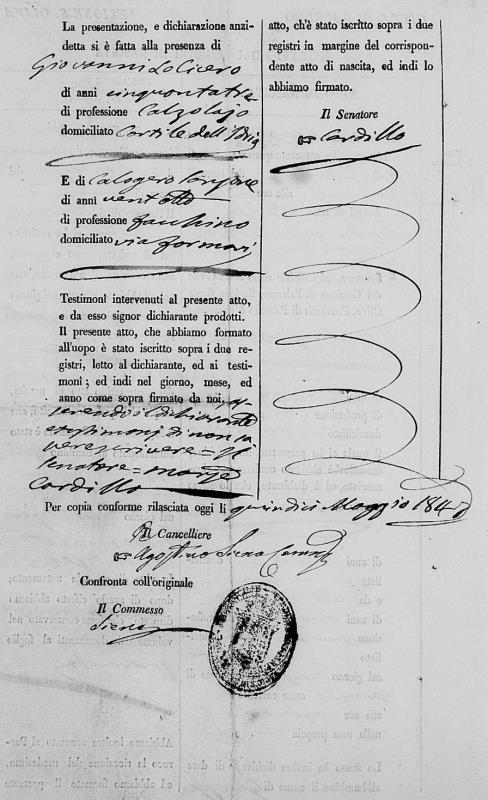 La presentazione, e dichiarazione anzi-
detta si è fatta alla presenza di
Giovanni Lo Cicero
di anni cinquantatre
di professione Calzolajo
domiciliato Cortile dell'
E di Calogero
di anni vent'otto
di professione facchino
domiciliato via
Testimonî intervenuti al presente atto,
e da esso signor dichiarante prodotti.
Il presente atto, che abbiamo formato
all'uopo è stato iscritto sopra i due re-
gistri, letto al dichiarante, ed ai testi-
monî; ed indi nel giorno, mese, ed
anno come sopra firmato da noi,
avendo il dichiarante
e testimonj di non sa
pere scrivere = Il
Senatore =
Cardillo
atto, ch'è stato iscritto sopra i due
registri in margine del corrispon-
dente atto di nascita, ed indi lo
abbiamo firmato.
Il Senatore
Cardillo
Per copia conforme rilasciata oggi li quindici Maggio 184
Il Cancelliere
Agostino Siena
Confronta coll'originale
Il Commesso
Siena